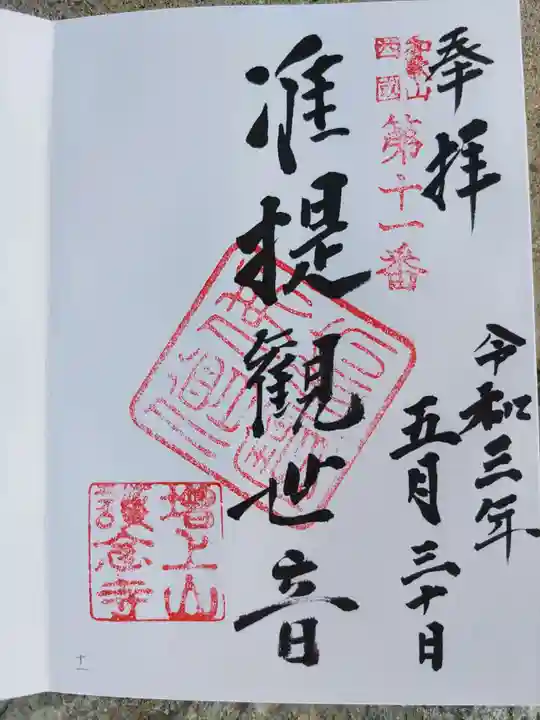 奉拝
和歌山
西國
第十一番
令和三年
五月三十日
准提観世音
増上山
護念寺
十一